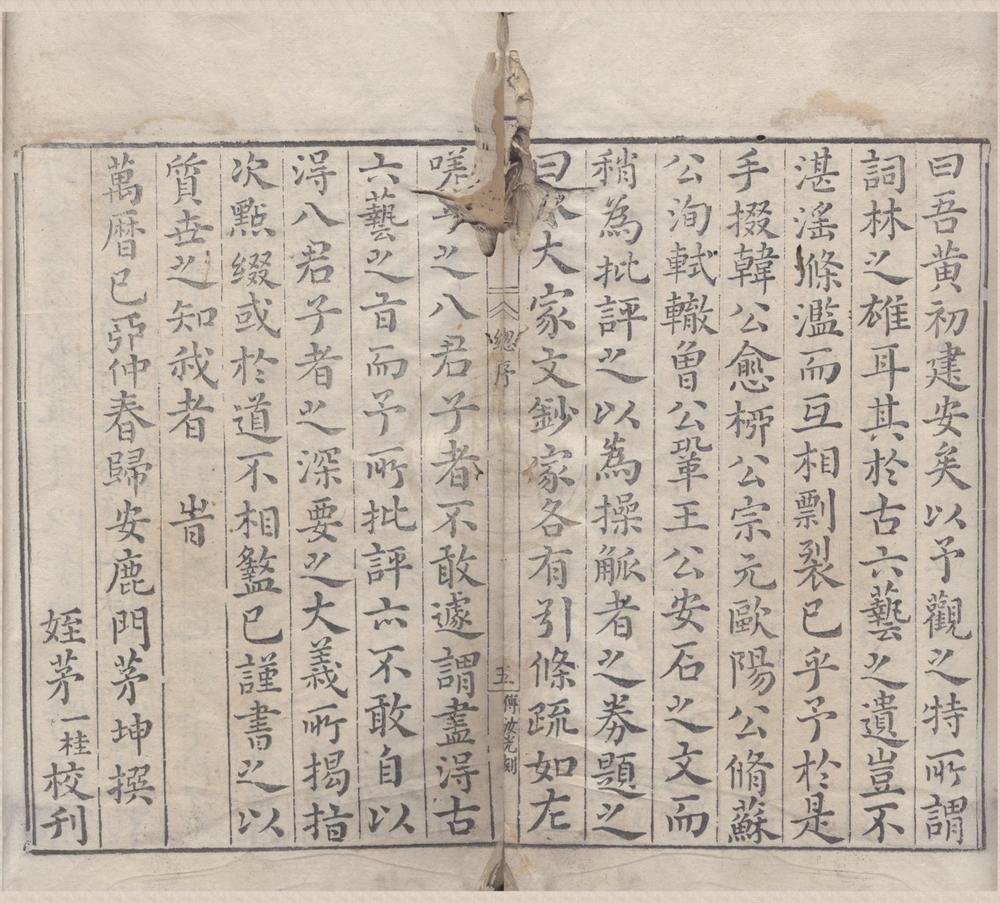 曰吾黄初建安矣以予觀之特所謂
詞林之雄耳其於古六藝之遺豈不
湛滛滌濫而互相剽裂已乎予於是
手掇韓公愈栁公宗元歐陽公脩蘇
公洵軾轍曽公鞏王公安石之文而
稍為批評之以為操觚者之券題之
曰大家文鈔家各有引條疏如左
總序
五
傅汝光刻
嗟之八君子者不敢遽謂盡淂古
六藝之旨而予所批評亦不敢自以
淂八君子者之深要之大義所揭指
次點綴或於道不相盭已謹書之以
質世之知我者 旹
萬曆己夘仲春歸安鹿門茅坤撰
姪茅一桂校刋